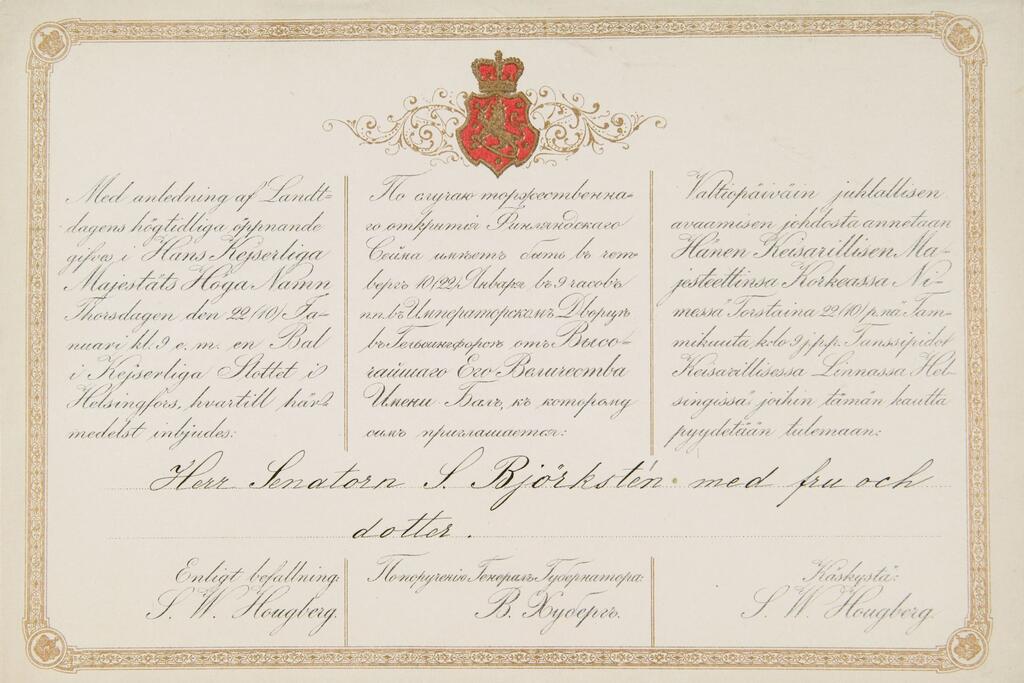 Med anledning af Landt-
dagens högtidliga öppnande
gifves i Hans Kejserliga
Majestäts Höga Namn
Thorsdagen den 22/10/ Ja-
nuari kl. 9 e. m. en Bal
i Kejserliga Slottet i
Helsingfors, hvartill här-
medelst inbjudes:
По случаю торжественна-
го открытія Финляндскаго
Сейма имѣетъ быть въ чет-
вергъ 10/22/ Января въ 9 часовъ
п.п. въ Императорскомъ Дворцѣ
въ Гельсингфорсѣ отъ Высо-
чайшаго Его Величества
Имени Балъ, къ которому
симъ приглашается:
Valtiopäiväin juhlallisen
avaamisen johdosta annetaan
Hänen Keisarillisen Ma-
jesteettinsa Korkeassa Ni-
messä Torstaina 22/10/ p:nä Tam-
mikuuta, k:lo 9 j.p.p. Tanssipidot
Keisarillisessa Linnassa Hel-
singissä joihin tämän kautta
pyydetään tulemaan:
Herr Senatorn S. Björkstén med fru och
dotter.
Enligt befallning:
S. W. Hougberg.
По порученію Генералъ Губернатора:
В. Хубергъ.
Käskystä:
S. W. Hougberg.